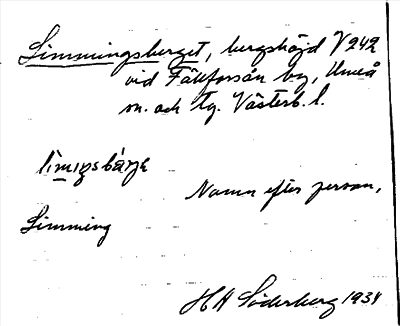 Limmingsberget, bergshöjd V 242
vid Fällforsån by, Umeå
sn. och tg. Västerb. l.
Namn efter person,
Limming
HA Söderberg 1931